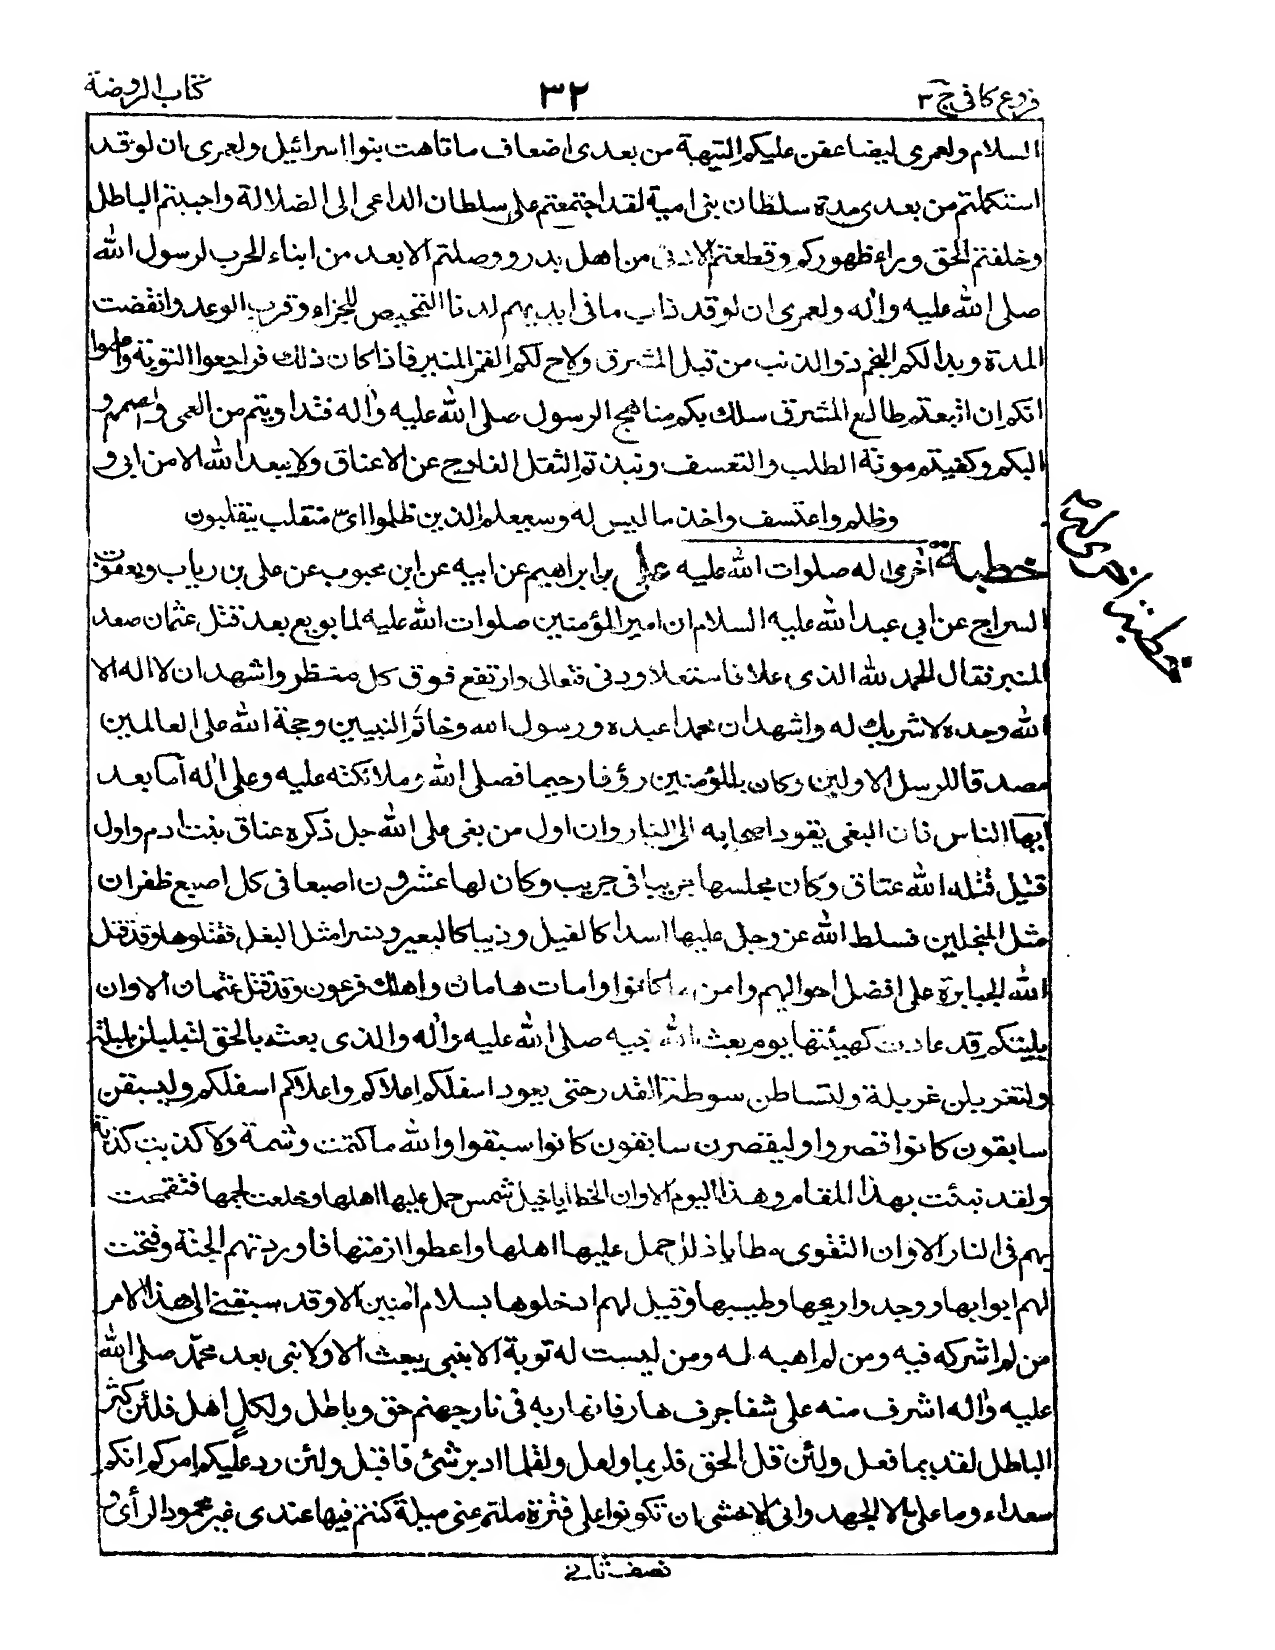 فروع كافى ج ٣
٣٢
كتاب الروضة
السلام ولعمرى ليضاعفن عليكم التيهة من بعدى اضعاف ما تاهت بنوا اسرائيل ولعمرى ان لو قد
استكملتم من بعدى مدة سلطان بنى امية لقد اجتمعتم على سلطان الداعى الى الضلالة واحييتم الباطل
وخلفتم الحق وراء ظهوركم وقطعتم الادنى من اهل بدر ووصلتم الابعد من ابناء الحرب لرسول الله
صلى الله عليه واله ولعمرى ان لو قد ذاب ما فى ايديهم لدنا التمحيص للجزاء وقرب الوعد وانقضت
المدة وبدا لكم النجم ذو الذنب من قبل المشرق ولاح لكم القمر المنير فاذا كان ذلك فراجعوا التوبة واعلموا
انكم ان اتبعتم طالع المشرق سلك بكم مناهج الرسول صلى الله عليه واله فتداويتم من العمى والصمم و
البكم وكفيتم مونة الطلب والتعسف ونبذتم الثقل الفادح عن الاعناق ولا يبعد الله الا من ابى و
وظلم واعتسف واخذ ما ليس له وسيعلم الذين ظلموا اى منقلب ينقلبون
خطبة اخرى له صلوات الله عليه على بن ابراهيم عن ابيه عن ابن محبوب عن على بن رياب ويعقوب
السراج عن ابى عبد الله عليه السلام ان امير المؤمنين صلوات الله عليه لما بويع بعد قتل عثمان صعد
المنبر فقال الحمد لله الذى علا فاستعلا ودنى فتعالى وارتفع فوق كل منظر واشهد ان لا اله الا
الله وحده لا شريك له واشهد ان محمدا عبده ورسول الله وخاتم النبيين وحجة الله على العالمين
مصدقا للرسل الاولين وكان بالمؤمنين رؤفا رحيما فصلى الله وملائكته عليه وعلى اله اما بعد
ايها الناس فان البغى يقود اصحابه الى النار وان اول من بغى على الله جل ذكره عناق بنت ادم واول
قتيل قتله الله عناق وكان مجلسها جريبا فى جريب وكان لها عشرون اصبعا فى كل اصبع ظفران
مثل المنجلين فسلط الله عز وجل عليها اسدا كالفيل وذيبا كالبعير ونسرا مثل البغل فقتلوها وقد قتل
الله الجبابرة على افضل احوالهم وامن ما كانوا وامات هامان واهلك فرعون وقد قتل عثمان الا وان
بليتكم قد عادت كهيئتها يوم بعث الله نبيه صلى الله عليه واله والذى بعثه بالحق لتبلبلن بلبلة
ولتغربلن غربلة ولتساطن سوطة القدر حتى يعود اسفلكم اعلاكم واعلاكم اسفلكم وليسبقن
سابقون كانوا قصروا وليقصرن سابقون كانوا سبقوا والله ما كتمت وشمة ولا كذبت كذبة
ولقد نبئت بهذا المقام وهذا اليوم الا وان الخطايا خيل شمس حمل عليها اهلها وخلعت لجمها فتقحمت
بهم فى النار الا وان التقوى مطايا ذلل حمل عليها اهلها واعطوا ازمتها فاوردتهم الجنة وفتحت
لهم ابوابها ووجدوا ريحها وطيبها وقيل لهم ادخلوها بسلام امنين الا وقد سبقنى الى هذا الامر
من لم اشركه فيه ومن لم اهبه له ومن ليست له توبة الا بنبى يبعث الا ولا نبى بعد محمد صلى الله
عليه واله اشرف منه على شفا جرف هار فانهار به فى نار جهنم حق وباطل ولكل اهل فلئن كثر
الباطل لقديما فعل ولئن قل الحق فلربما ولعل ولقلما ادبر شئ فاقبل ولئن رد عليكم امركم انكم
سعداء وما على الا الجهد وانى لاخشى ان تكونوا على فترة ملتم عنى ميلة كنتم فيها عندى غير محمود الرأى و
خطبة اخرى له
نصف ثانى